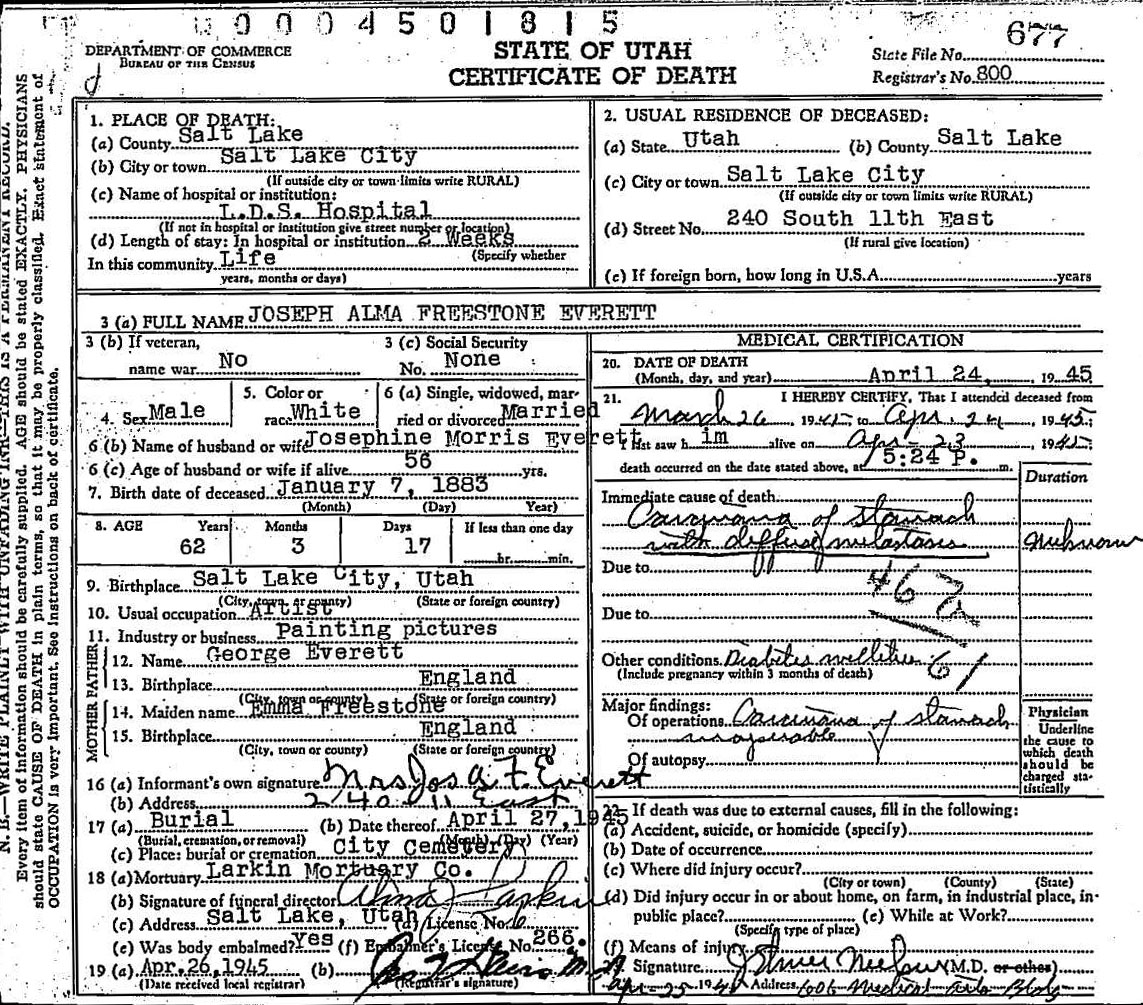 0 0 0 4 5 0 1 8 1 5
677
DEPARTMENT OF COMMERCE
BUREAU OF THE CENSUS
STATE OF UTAH
CERTIFICATE OF DEATH
State File No.
Registrar's No. 800
N. B.—WRITE PLAINLY WITH UNFADING INK—THIS IS A PERMANENT RECORD.
Every item of information should be carefully supplied. AGE should be stated EXACTLY. PHYSICIANS
should state CAUSE OF DEATH in plain terms, so that it may be properly classified. Exact statement of
OCCUPATION is very important. See instructions on back of certificate.
1. PLACE OF DEATH:
(a) County Salt Lake
(b) City or town Salt Lake City
(If outside city or town limits write RURAL)
(c) Name of hospital or institution:
L.D.S. Hospital
(If not in hospital or institution give street number or location)
(d) Length of stay: In hospital or institution 2 Weeks
(Specify whether
In this community Life
years, months or days)
2. USUAL RESIDENCE OF DECEASED:
(a) State Utah (b) County Salt Lake
(c) City or town Salt Lake City
(If outside city or town limits write RURAL)
(d) Street No. 240 South 11th East
(If rural give location)
(e) If foreign born, how long in U.S.A. years
3 (a) FULL NAME JOSEPH ALMA FREESTONE EVERETT
3 (b) If veteran,
name war No
3 (c) Social Security
No. None
4. Sex Male
5. Color or
race White
6 (a) Single, widowed, mar-
ried or divorced Married
6 (b) Name of husband or wife Josephine Morris Everett
6 (c) Age of husband or wife if alive 56 yrs.
7. Birth date of deceased January 7, 1883
(Month) (Day) Year)
8. AGE Years Months Days If less than one day
62 3 17 hr. min.
9. Birthplace Salt Lake City, Utah
(City, town, or county) (State or foreign country)
10. Usual occupation Artist
11. Industry or business Painting pictures
MOTHER FATHER
12. Name George Everett
13. Birthplace England
(City, town or county) (State or foreign country)
14. Maiden name Emma Freestone
15. Birthplace England
(City, town or county) (State or foreign country)
16 (a) Informant's own signature Mrs Jos A. F. Everett
(b) Address 240 - 11 East
17 (a) Burial (b) Date thereof April 27, 1945
(Burial, cremation, or removal) (Month) (Day) (Year)
(c) Place: burial or cremation City Cemetery
18 (a) Mortuary Larkin Mortuary Co.
(b) Signature of funeral director Alma J Larkin
(c) Address Salt Lake, Utah (d) License No. 6
(e) Was body embalmed? yes (f) Embalmer's License No. 266.
19 (a) Apr. 26, 1945 (b) M.D.
(Date received local registrar) (Registrar's signature)
MEDICAL CERTIFICATION
20. DATE OF DEATH
(Month, day, and year) April 24, 1945
21. I HEREBY CERTIFY, That I attended deceased from
March 26, 1945 to Apr. 24, 1945;
I last saw h im alive on Apr - 23 1945;
death occurred on the date stated above, at 5:24 P. m.
Duration
Immediate cause of death
Carcinoma of stomach
with diffuse metastasis Unknown
Due to
462
Due to
61
Other conditions Diabetes mellitus
(Include pregnancy within 3 months of death)
Major findings:
Of operations Carcinoma of stomach
inoperable
Of autopsy
Physician
Underline
the cause to
which death
should be
charged sta-
tistically
22. If death was due to external causes, fill in the following:
(a) Accident, suicide, or homicide (specify)
(b) Date of occurrence
(c) Where did injury occur?
(City or town) (County) (State)
(d) Did injury occur in or about home, on farm, in industrial place, in
public place? (e) While at Work?
(Specify type of place)
(f) Means of injury
Signature M.D. or other)
Apr - 25 19 Address 606 Medical Arts Bldg